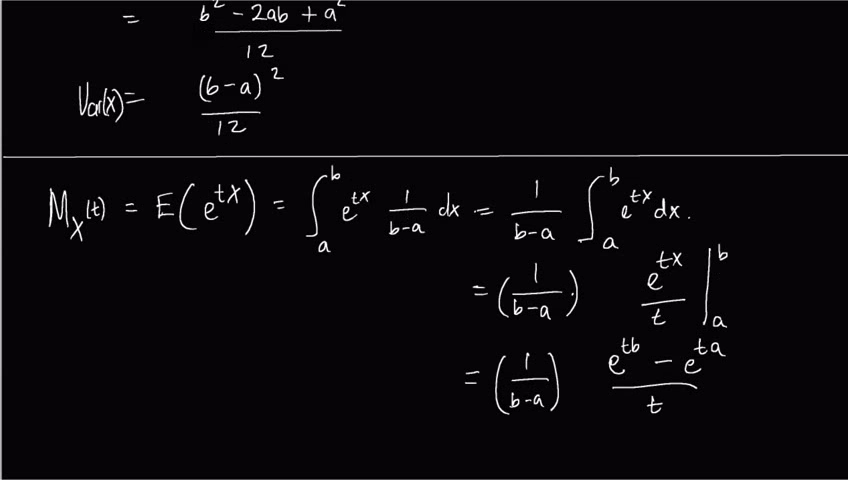 = b² - 2ab + a² / 12
Var(x) = (b-a)² / 12
M_X(t) = E(e^{tX}) = ∫_a^b e^{tx} 1/(b-a) dx = 1/(b-a) ∫_a^b e^{tx} dx.
= (1/(b-a)) e^{tx}/t |_a^b
= (1/(b-a)) (e^{tb} - e^{ta})/t